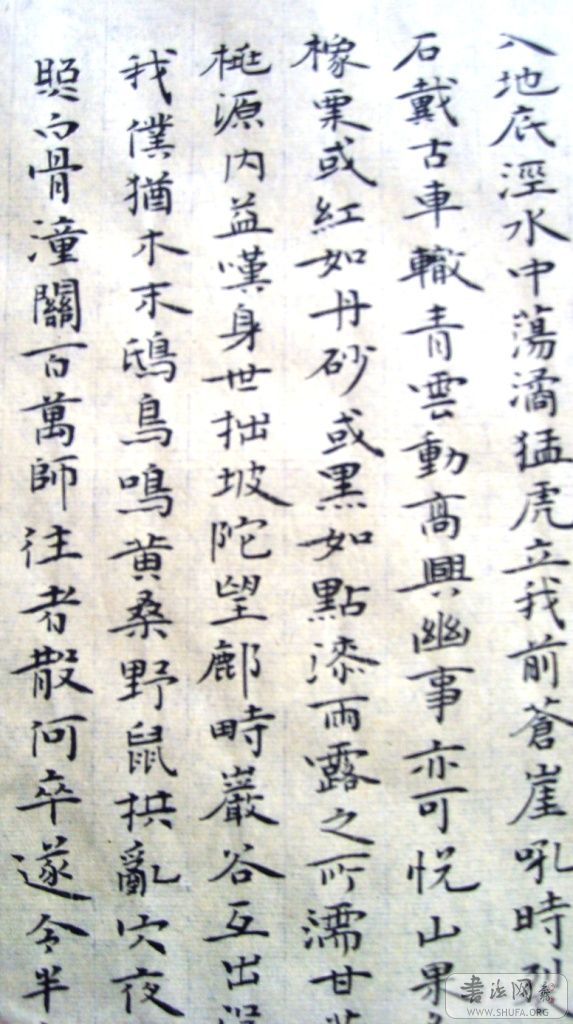 入地底涇水中蕩潏猛虎立我前蒼崖吼時
石戴古車轍青雲動高興幽事亦可悅山果
橡栗或紅如丹砂或黑如點漆雨露之所濡甘
桃源內益嘆身世拙坡陀望鄜畤巖谷互出
我僕猶木末鴟鳥鳴黃桑野鼠拱亂穴夜
照白骨潼關百萬師往者散何卒遂令半
書法网
WWW.SHUFA.ORG